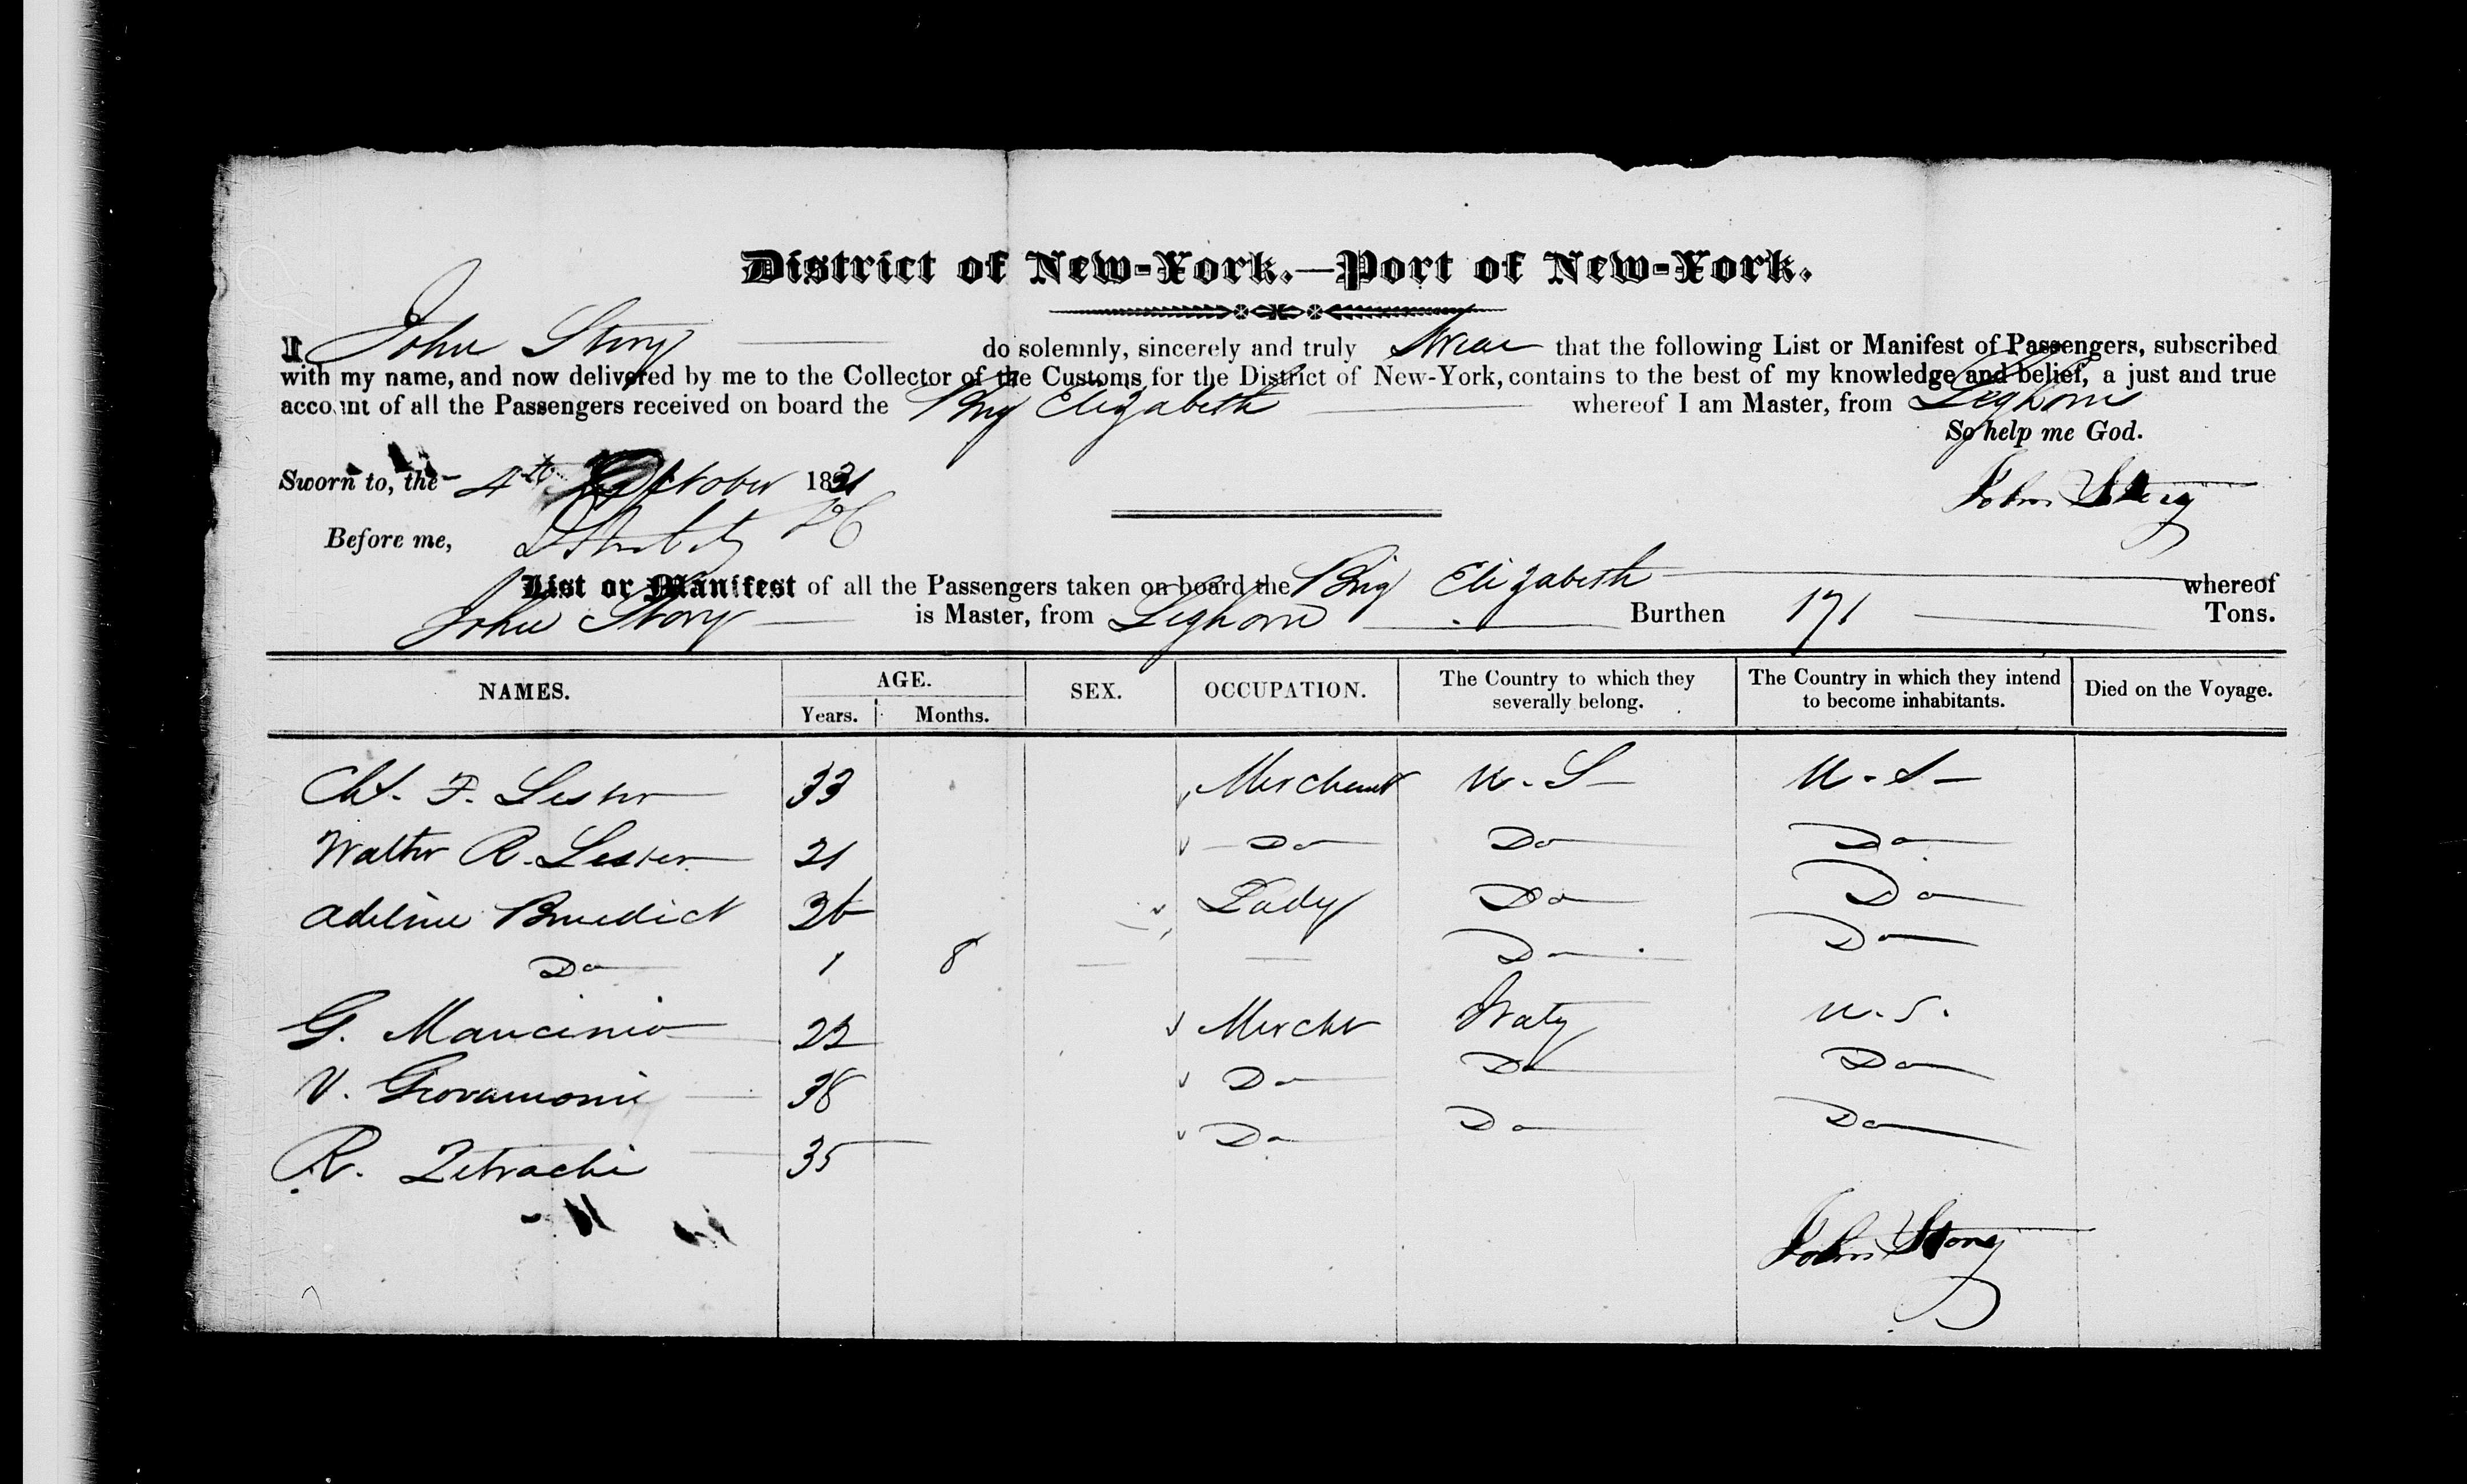 District of New-York.—Port of New-York.
I John Story do solemnly, sincerely and truly swear that the following List or Manifest of Passengers, subscribed
with my name, and now delivered by me to the Collector of the Customs for the District of New-York, contains to the best of my knowledge and belief, a just and true
account of all the Passengers received on board the Brig Elizabeth whereof I am Master, from Leghorn
So help me God.
Sworn to, the 4th October 1831 John Story
Before me,
List or Manifest of all the Passengers taken on board the Brig Elizabeth whereof
John Story is Master, from Leghorn Burthen 171 Tons.
NAMES. AGE. Years. Months. SEX. OCCUPATION. The Country to which they severally belong. The Country in which they intend to become inhabitants. Died on the Voyage.
F. Lester 33 Merchant U.S U.S
Walter R. Lester 21 Do Do Do
Adeline Benedict 26 Lady Do Do
Do 1 8 Do Do
G. Mancinio 22 Mercht Italy U.S.
V. 38 Do Do Do
R. 35 Do Do Do
John Story